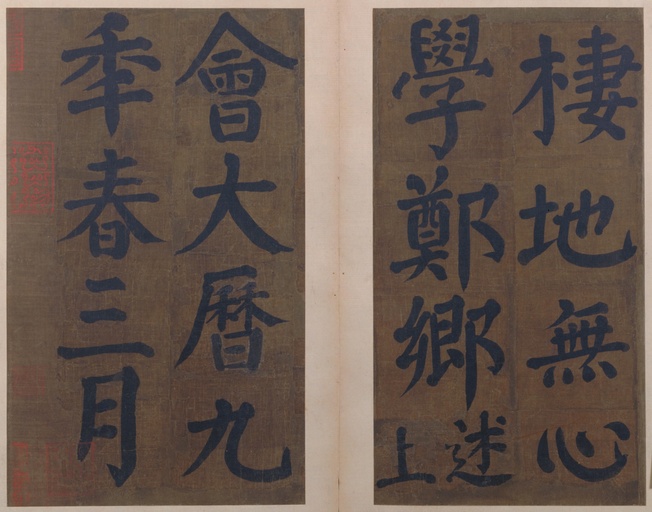 棲地無心
學鄭鄉
述上
會大曆九
年春三月